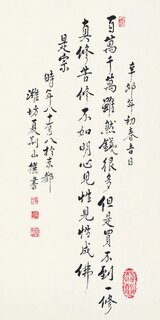 辛卯年初春吉日
百萬千萬雖然錢很多但是買不到一修
真修苦修不如明心見性見性成佛
是宗
時年八十有八於京都
濰坊夏荊山撰書